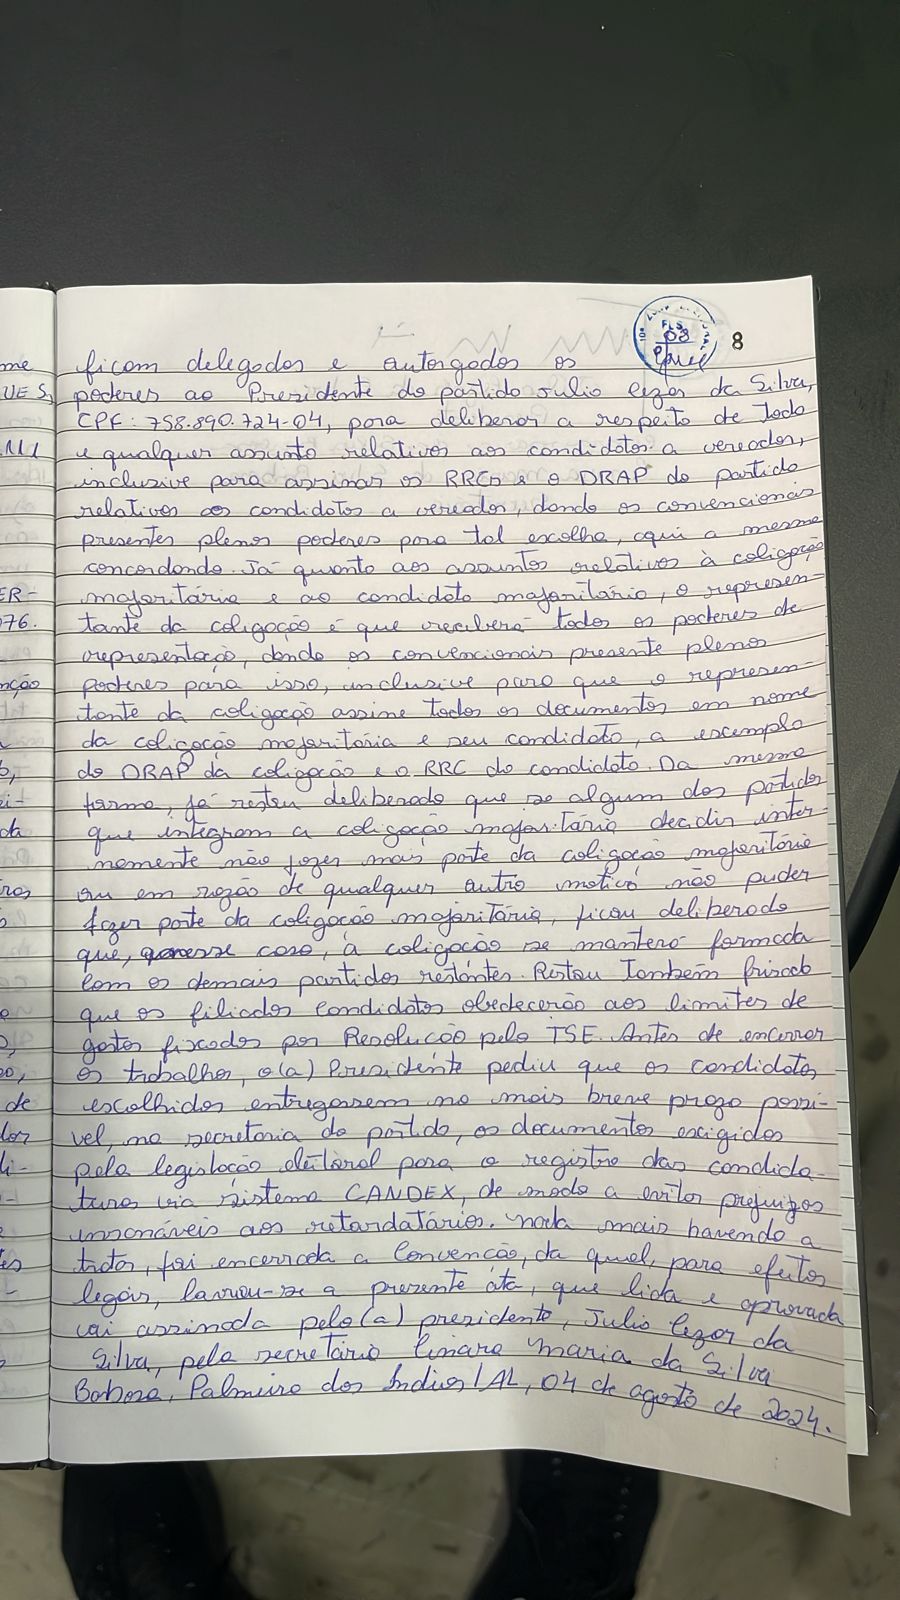 FLS
08
8
ficam delegados e outorgados os
poderes ao Presidente do partido Julio Cezar da Silva,
CPF: 758.890.724-04, para deliberar a respeito de todo
e qualquer assunto relativos aos candidatos a vereador,
inclusive para assinar os RRCs e o DRAP do partido
relativos aos candidatos a vereador, dando os convencionais
presentes plenos poderes para tal escolha, aqui a mesma
concordando. Já quanto aos assuntos relativos à coligação
majoritária e ao candidato majoritário, o represen-
tante da coligação é que receberá todos os poderes de
representação, dando os convencionais presente plenos
poderes para isso, inclusive para que o represen-
tante da coligação assine todos os documentos em nome
da coligação majoritária e seu candidato, a exemplo
do DRAP da coligação e o RRC do candidato. Da mesma
forma, já restou deliberado que se algum dos partidos
que integram a coligação majoritária decidir inter-
namente não fazer mais parte da coligação majoritária
ou em razão de qualquer outro motivo não puder
fazer parte da coligação majoritária, ficou deliberado
que, nesse caso, a coligação se manterá formada
com os demais partidos restantes. Restou também frisado
que os filiados candidatos obedecerão aos limites de
gastos fixados por Resolução pelo TSE. Antes de encerrar
os trabalhos, o(a) Presidente pediu que os candidatos
escolhidos entregassem no mais breve prazo possí-
vel, na secretaria do partido, os documentos exigidos
pela legislação eleitoral para o registro das candida-
turas via sistema CANDEX, de modo a evitar prejuízos
insanáveis aos retardatários. Nada mais havendo a
tratar, foi encerrada a Convenção, da qual, para efeitos
legais, lavrou-se a presente ata, que lida e aprovada
vai assinada pelo(a) presidente, Julio Cezar da
Silva, pela secretário Cinara Maria da Silva
Barbosa, Palmeira dos Índios/AL, 04 de agosto de 2024.
me
UES,
ER-
076.
nção
de